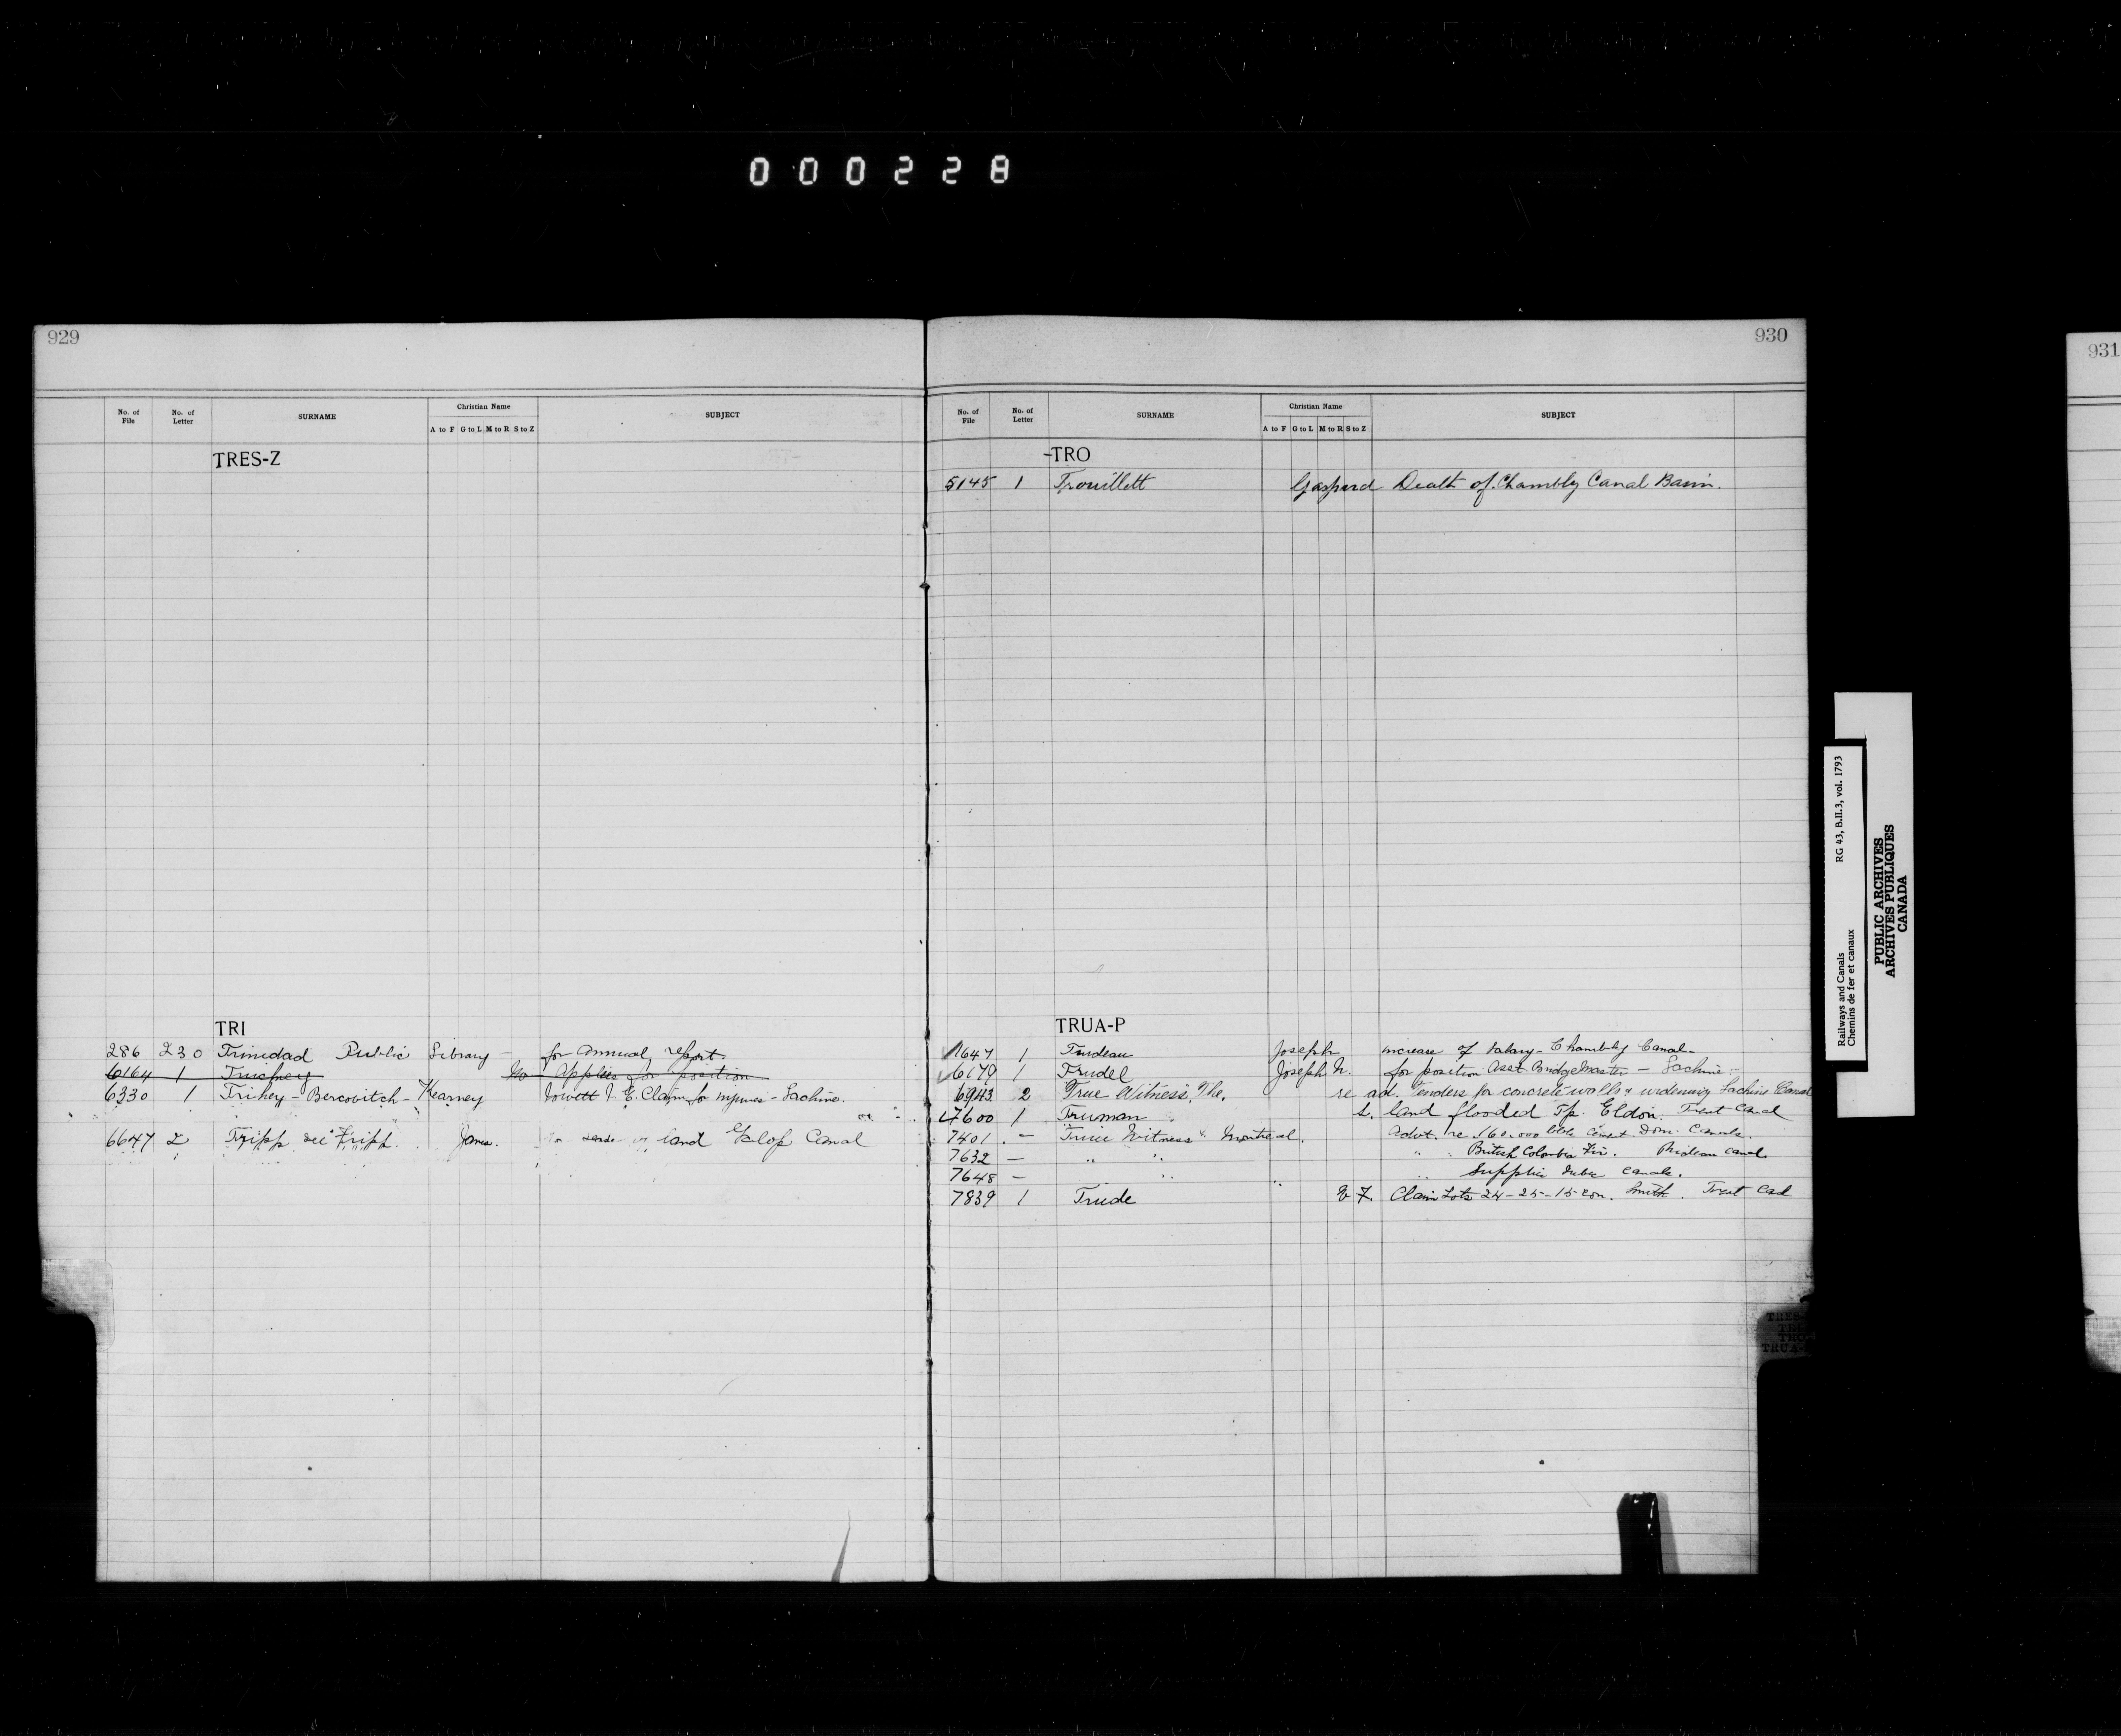 000228
929
No. of File No. of Letter SURNAME Christian Name A to F G to L M to R S to Z SUBJECT
TRES-Z
TRI
286 230 Trinidad Public Library - for Annual report.
6164 1 Applies for position
6330 1 Trihey - Bercovitch - Kearney Jowett J. E. Claim for injuries - Lachine.
6647 2 Tripp see "Fripp. James. land Galop Canal
930
No. of File No. of Letter SURNAME Christian Name A to F G to L M to R S to Z SUBJECT
-TRO
5145 1 Trouillett Gaspard Death of. Chambly Canal Basin.
TRUA-P
1647 1 Trudeau Joseph increase of salary - Chambly Canal -
6179 1 Trudel Joseph N. for position Asst. Bridgemaster - Lachine -
6943 2 True Witness, The. re ad. Tenders for concrete walls & widening Lachine Canal
7600 1 Truman S. land flooded Tp. Eldon. Trent Canal
7401 - True Witness Montreal. Advt. re 160.000 bbls Cement Dom. Canals.
7632 - " " " " British Columbia Fir. Rideau Canal.
7648 - " " Supplies Quebec Canals.
7839 1 Trude E F. Claim Lots 24-25-15 con. Smith. Trent Cal
931
Railways and Canals RG 43, B.II.3, vol. 1793
Chemins de fer et canaux
PUBLIC ARCHIVES
ARCHIVES PUBLIQUES
CANADA
TRES-
TRI
TRO
TRUA-